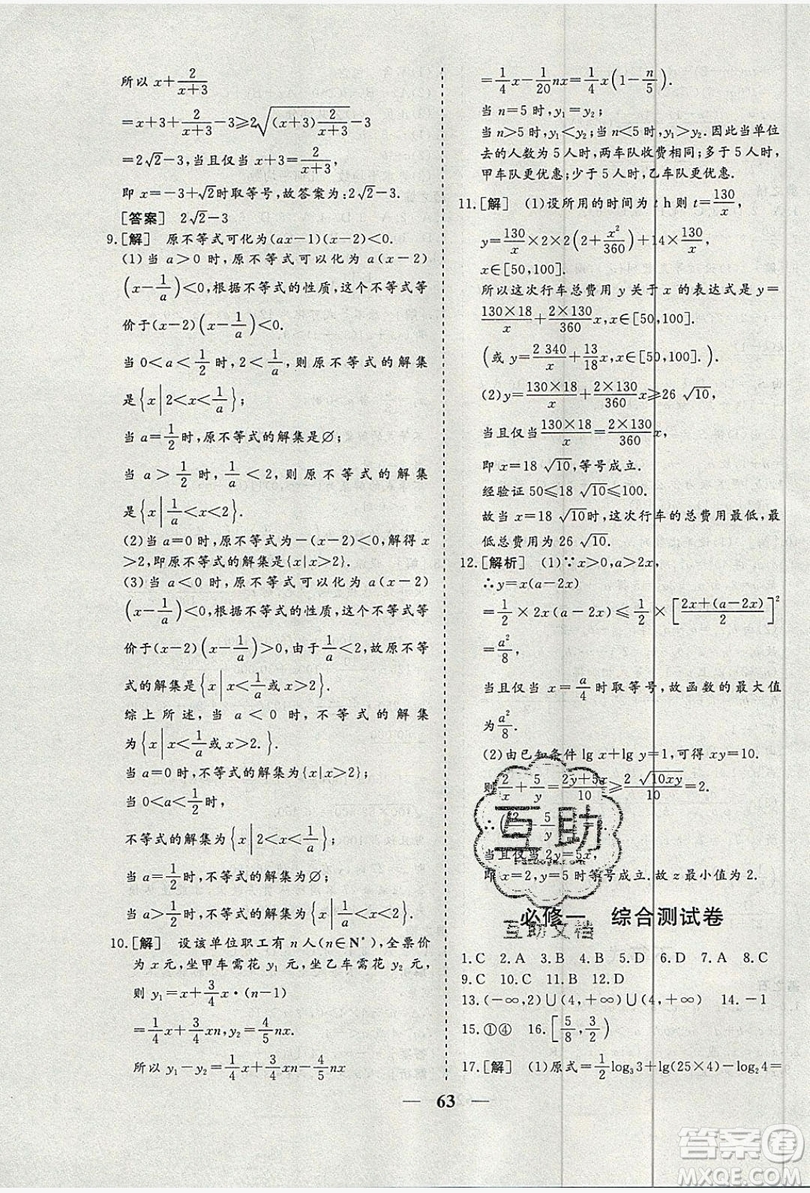 所以 x+2/(x+3)
=x+3+2/(x+3)-3≥2√((x+3)·2/(x+3))-3
=2√2-3,当且仅当 x+3=2/(x+3),
即 x=-3+√2时取等号,故答案为:2√2-3.
[答案] 2√2-3
9.[解] 原不等式可化为(ax-1)(x-2)<0.
(1)当 a>0 时,原不等式可以化为 a(x-2)
(x-1/a)<0,根据不等式的性质,这个不等式等
价于(x-2)(x-1/a)<0.
当 0<a<1/2时,2<1/a,则原不等式的解集
是{x|2<x<1/a};
当 a=1/2时,原不等式的解集是∅;
当 a>1/2时,1/a<2,则原不等式的解集
是{x|1/a<x<2}.
(2)当 a=0 时,原不等式为-(x-2)<0,解得 x
>2,即原不等式的解集是{x|x>2}.
(3)当 a<0 时,原不等式可以化为 a(x-2)
(x-1/a)<0,根据不等式的性质,这个不等式等
价于(x-2)(x-1/a)>0,由于1/a<2,故原不等
式的解集是{x|x<1/a或x>2}.
综上所述,当 a<0 时,不等式的解集
为{x|x<1/a或x>2.}
当 a=0 时,不等式的解集为{x|x>2};
当 0<a<1/2时,
不等式的解集为{x|2<x<1/a};
当 a=1/2时,不等式的解集为∅;
当 a>1/2时,不等式的解集为{x|1/a<x<2}.
10.[解] 设该单位职工有 n 人(n∈N*),全票价
为 x 元,坐甲车需花 y₁ 元,坐乙车需花 y₂ 元,
则 y₁=x+3/4x·(n-1)
=1/4x+3/4xn,y₂=4/5nx.
所以 y₁-y₂=1/4x+3/4xn-4/5nx
=1/4x-1/20nx=1/4x(1-n/5).
当 n=5 时,y₁=y₂;
当 n>5 时,y₁<y₂;当 n<5 时,y₁>y₂.因此当单位
去的人数为 5 人时,两车队收费相同;多于 5 人时,
甲车队更优惠;少于 5 人时,乙车队更优惠.
11.[解] (1)设所用的时间为 t h则 t=130/x
y=130/x×2×2(2+x²/360)+14×130/x,
x∈[50,100].
所以这次行车总费用 y 关于 x 的表达式是 y=
130×18/x+2×130/360x,x∈[50,100].
(或 y=2 340/x+13/18x,x∈[50,100]).
(2)y=130×18/x+2×130/360x≥26 √10,
当且仅当130×18/x=2×130/360x,
即 x=18 √10,等号成立.
经验证 50≤18 √10≤100.
故当 x=18 √10时,这次行车的总费用最低,最
低总费用为 26 √10.
12.[解析] (1)∵x>0,a>2x,
∴y=x(a-2x)
=1/2×2x(a-2x)≤1/2×[(2x+(a-2x))/2]²
=a²/8,
当且仅当 x=a/4时取等号,故函数的最大值
为a²/8.
(2)由已知条件 lg x+lg y=1,可得 xy=10.
则2/x+5/y=(2y+5x)/10≥2 √10xy/10=2.
当且仅当 2y=5x,
即 x=2,y=5 时等号成立.故 z 最小值为 2.
必修一 综合测试卷
13.(-∞,2)∪(4,+∞)∪(4,+∞) 14.-1
15.①④ 16.[5/8,3/2)
17.[解] (1)原式=1/2log₃3+lg(25×4)-log₂4=
63
互助
互助文档
答案圈
MXQE.COM